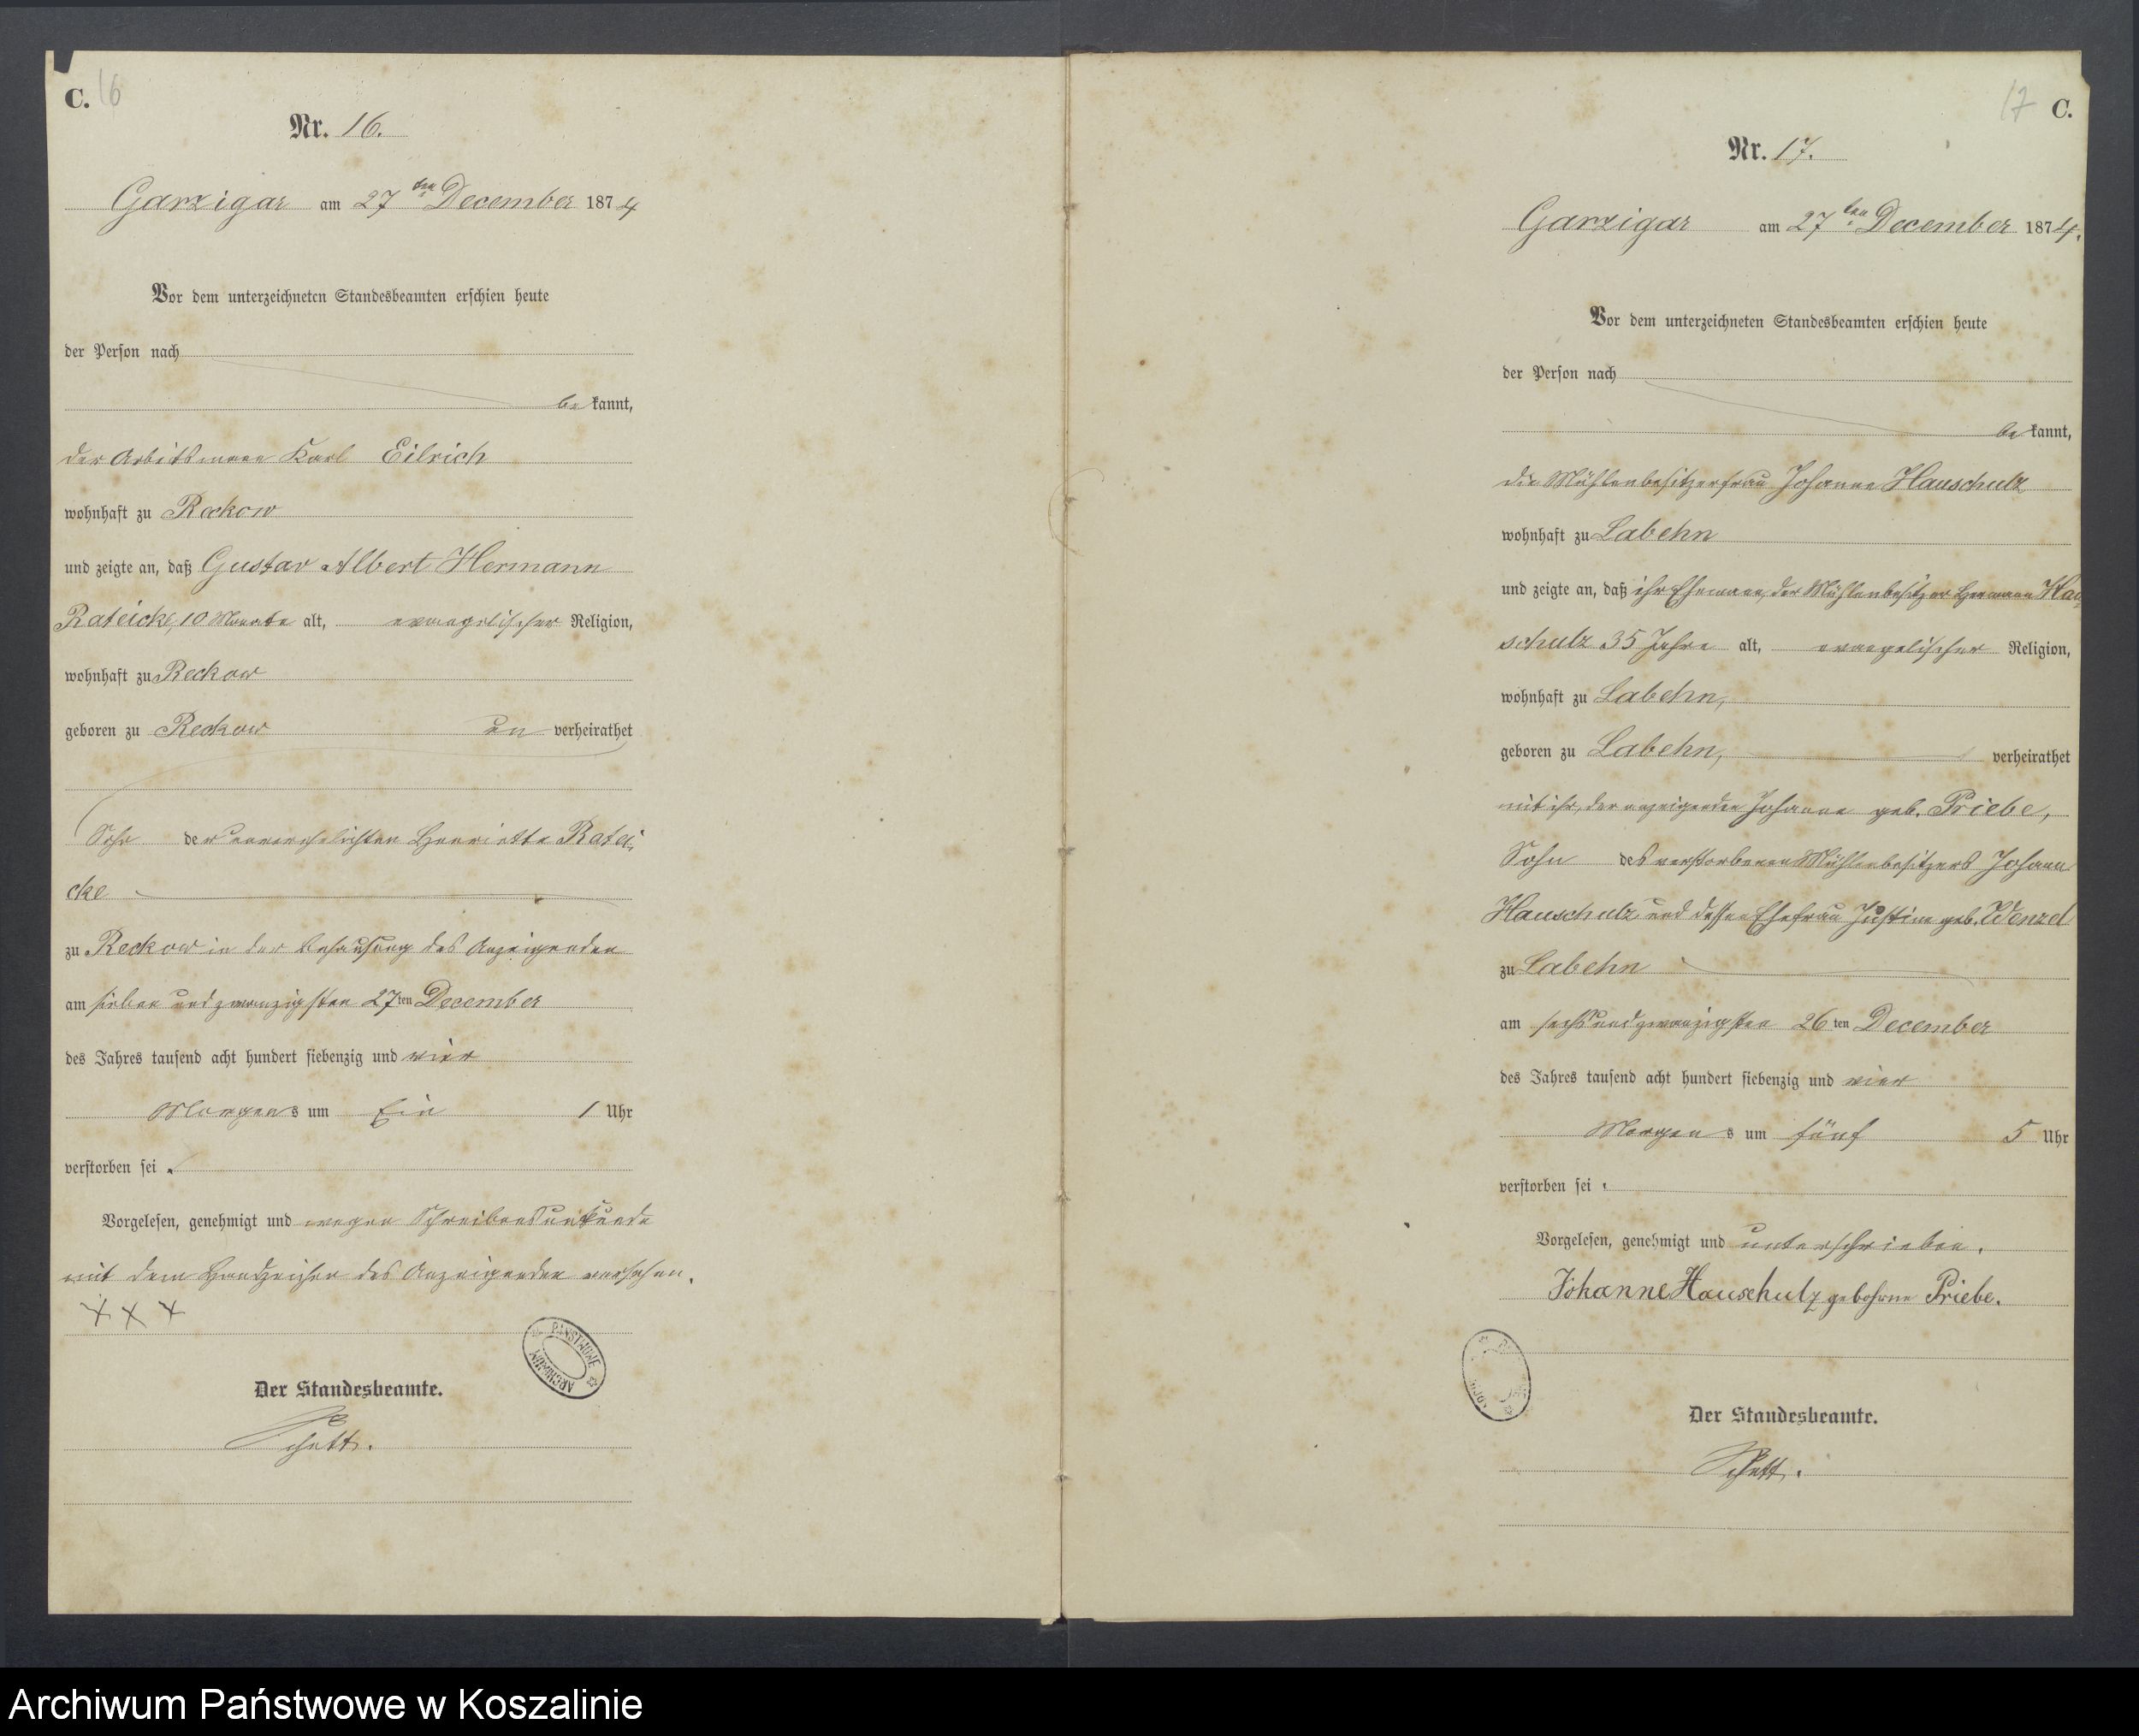 C. 16
Nr. 16.
Garzigar am 27ten December 1874
Vor dem unterzeichneten Standesbeamten erschien heute
der Person nach
be kannt,
der Arbeitsmann Karl Eilrich
wohnhaft zu Reckow
und zeigte an, daß Gustav Albert Hermann
Rateicke, 10 Monate alt, evangelischer Religion,
wohnhaft zu Reckow
geboren zu Reckow un verheirathet
Sohn der unverehelichten Henriette Ratei-
cke
zu Reckow in der Behausung des Anzeigenden
am sieben und zwanzigsten 27ten December
des Jahres tausend acht hundert siebenzig und vier
Morgens um Ein 1 Uhr
verstorben sei.
Vorgelesen, genehmigt und wegen Schreibensunkunde
mit dem Handzeichen des Anzeigenden versehen.
XXX
PAŃSTWOWE ARCHIWUM
Der Standesbeamte.
17 C.
Nr. 17.
Garzigar am 27ten December 1874.
Vor dem unterzeichneten Standesbeamten erschien heute
der Person nach
be kannt,
die Mühlenbesitzerfrau Johanne Hauschulz
wohnhaft zu Labehn
und zeigte an, daß ihr Ehemann, der Mühlenbesitzer Hermann Hau-
schulz 35 Jahre alt, evangelischer Religion,
wohnhaft zu Labehn,
geboren zu Labehn, verheirathet
mit ihr, der anzeigenden Johanne geb. Priebe,
Sohn des verstorbenen Mühlenbesitzers Johann
Hauschulz und dessen Ehefrau Justine geb. Wenzel
zu Labehn
am sechsundzwanzigsten 26ten December
des Jahres tausend acht hundert siebenzig und vier
Morgens um fünf 5 Uhr
verstorben sei.
Vorgelesen, genehmigt und unterschrieben.
Johanne Hauschulz gebohrne Priebe.
Der Standesbeamte.
Archiwum Państwowe w Koszalinie